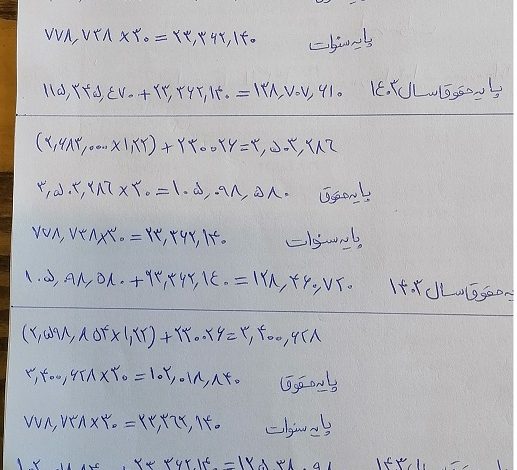 ۷۷۸,۷۳۸ × ۳۰ = ۲۳,۳۶۲,۱۴۰ پایه سنوات
۱۱۵,۳۴۵,۴۷۰ + ۲۳,۳۶۲,۱۴۰ = ۱۳۸,۷۰۷,۶۱۰ پایه حقوق سال ۱۴۰۳
(۲,۶۸۳,۰۰۰ × ۱,۲۲) + ۲۳۰۰۲۶ = ۳,۵۰۳,۲۸۶
۳,۵۰۳,۲۸۶ × ۳۰ = ۱۰۵,۰۹۸,۵۸۰ پایه حقوق
۷۷۸,۷۳۸ × ۳۰ = ۲۳,۳۶۲,۱۴۰ پایه سنوات
۱۰۵,۰۹۸,۵۸۰ + ۲۳,۳۶۲,۱۴۰ = ۱۲۸,۴۶۰,۷۲۰ حقوق سال ۱۴۰۳
(۲,۵۹۸,۸۵۴ × ۱,۲۲) + ۲۳۰۰۲۶ = ۳,۴۰۰,۶۲۸
۳,۴۰۰,۶۲۸ × ۳۰ = ۱۰۲,۰۱۸,۸۴۰ پایه حقوق
۷۷۸,۷۳۸ × ۳۰ = ۲۳,۳۶۲,۱۴۰ پایه سنوات